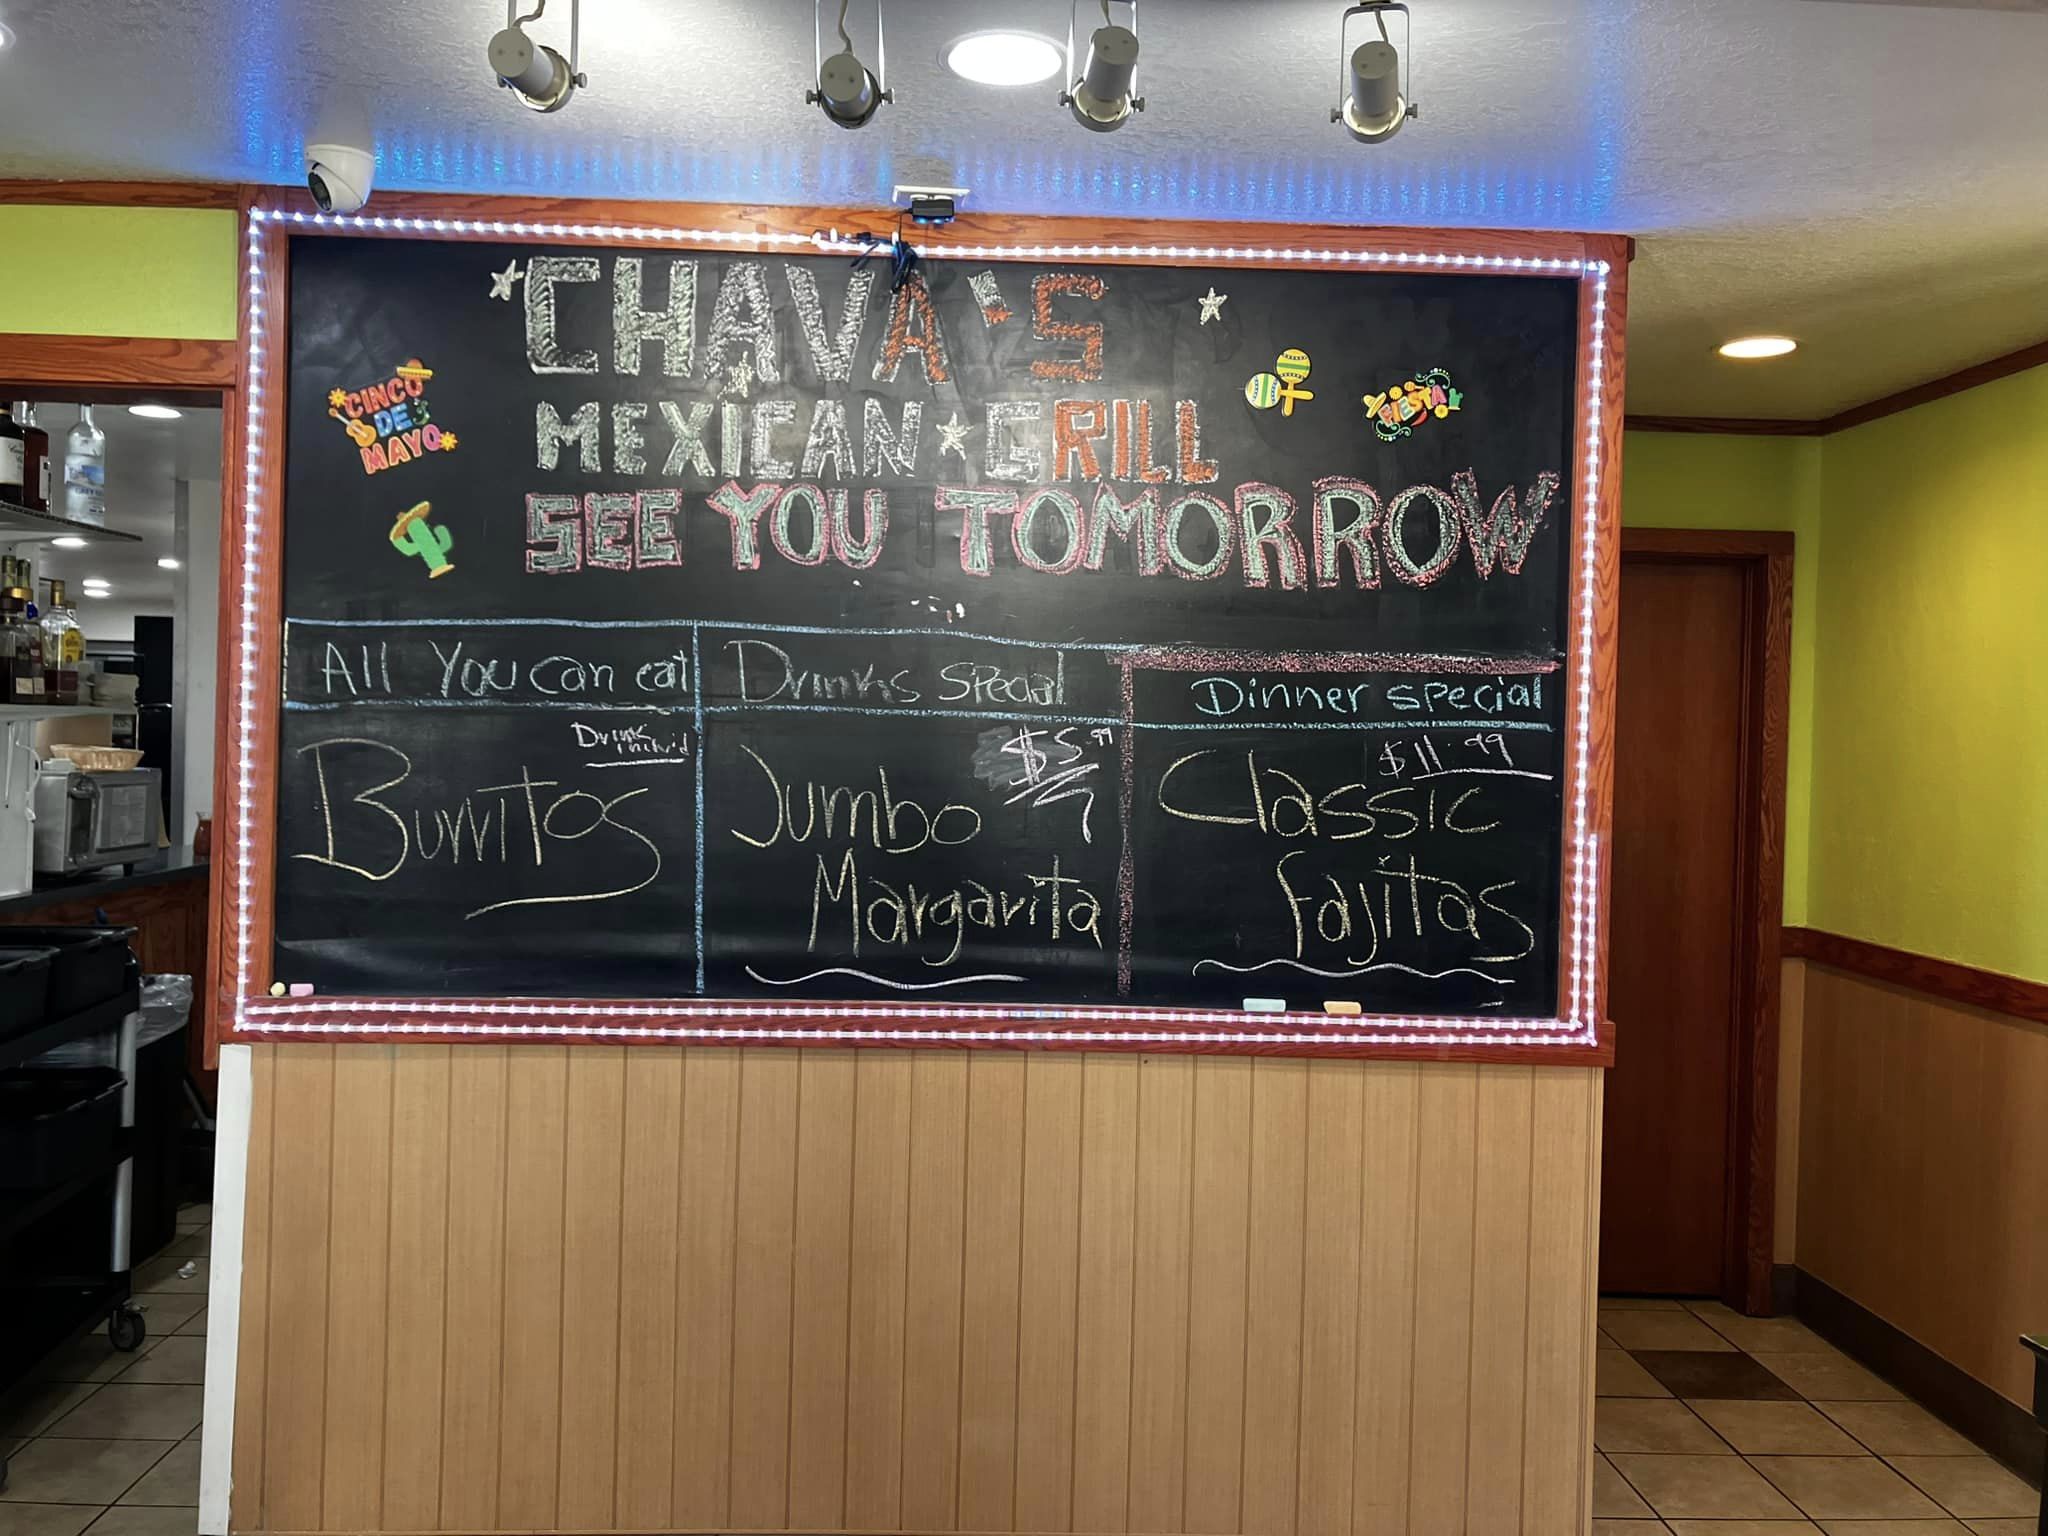 CHAVA'S
MEXICAN GRILL
SEE YOU TOMORROW
CINCO
DE
MAYO
FIESTA
All You can eat
Drinks
Burritos
Drinks Special
$5.99
Jumbo
Margarita
Dinner special
$11.99
Classic
Fajitas